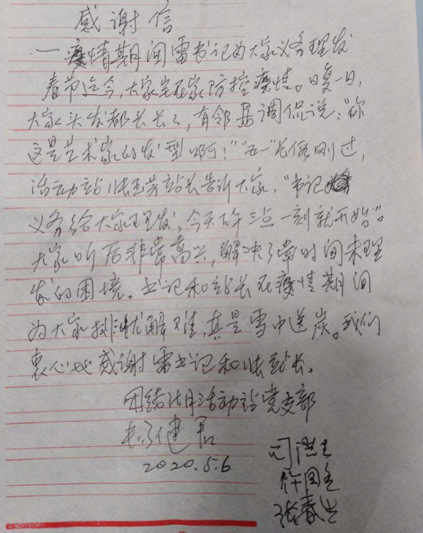 感谢信
一疫情期间雷书记为大家义务理发
春节迄今,大家宅在家防控疫情。日复一日,
大家头发都长长了,有邻居调侃说:“你
这是艺术家的发型啊!”“五一”长假刚过,
活动站张站长告诉大家,“书记
义务给大家理发,今天下午三点一刻就开始”。
大家听后非常高兴,解决了长时间未理
发的困境。书记和站长在疫情期间
为大家排忧解难,真是雪中送炭。我们
衷心地感谢雷书记和张站长。
团结湖活动站党支部
2020.5.6